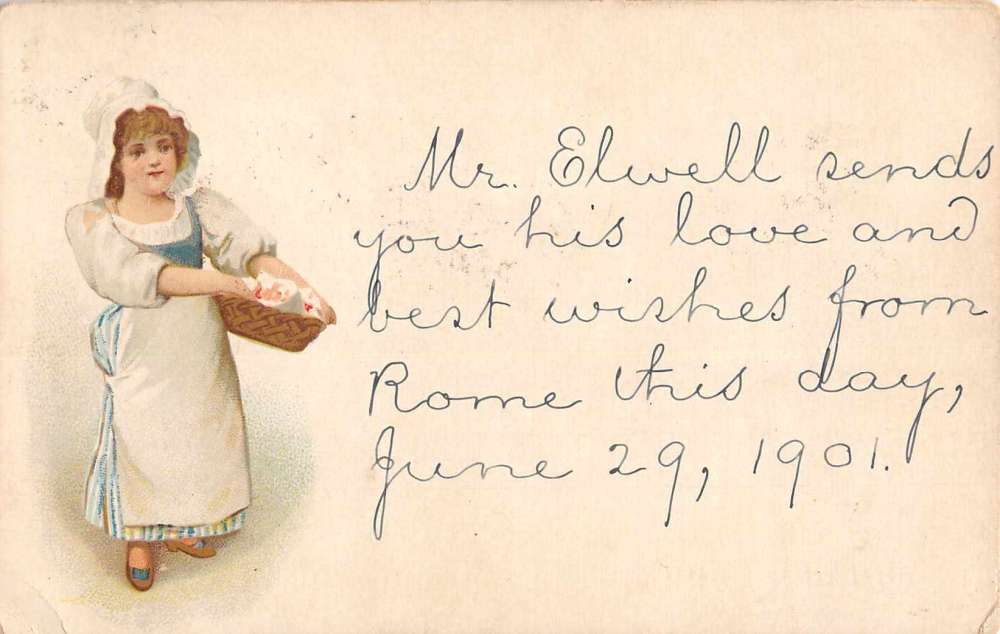 Mr. Elwell sends
you his love and
best wishes from
Rome this day,
June 29, 1901.